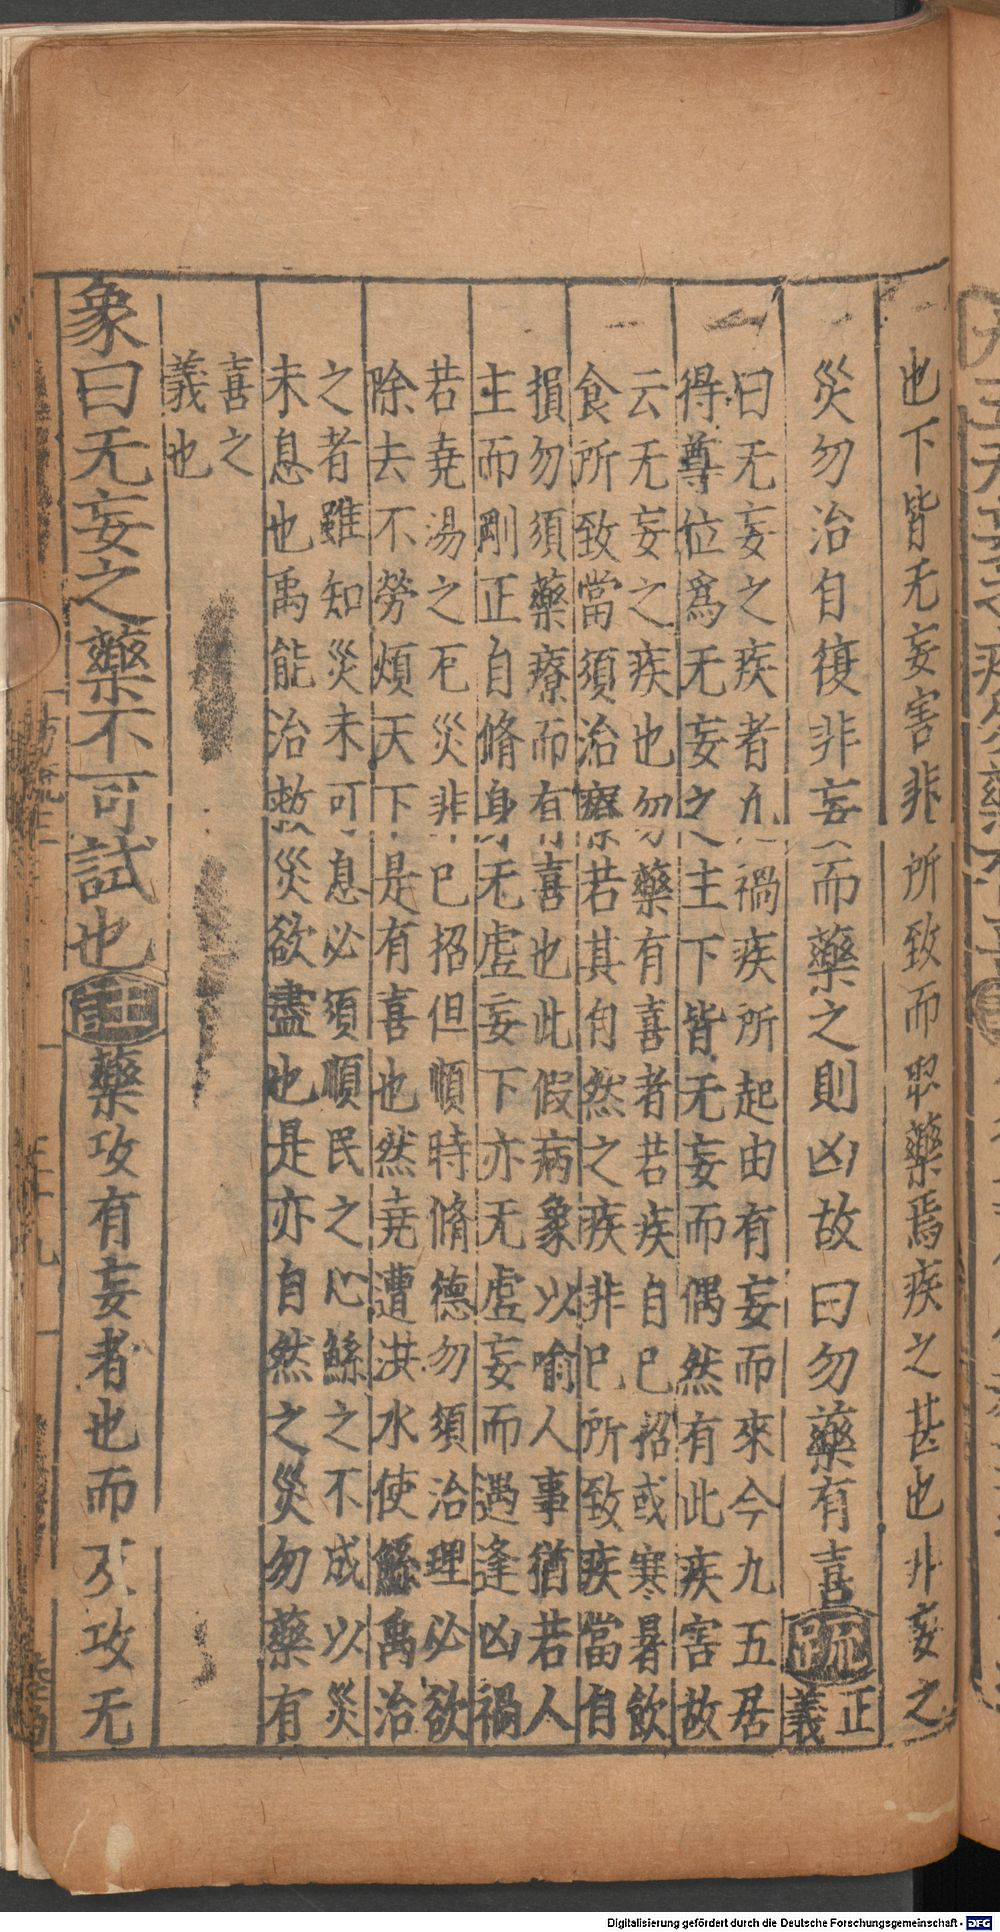 也下皆无妄害非所致而取藥焉疾之甚也非妄之
災勿治自復非妄而藥之則凶故曰勿藥有喜疏正義
曰无妄之疾者九禍疾所起由有妄而來今九五居
得尊位爲无妄之主下皆无妄而偶然有此疾害故
云无妄之疾也勿藥有喜者若疾自已招或寒暑飲
食所致當須治療若其自然之疾非已所致疾當自
損勿須藥療而有喜也此假病象以喻人事猶若人
主而剛正自脩身无虛妄下亦无虛妄而遇逢凶禍
若堯湯之厄災非已招但順時脩德勿須治理必欲
除去不勞煩天下是有喜也然堯遭洪水使鯀禹治
之者雖知災未可息必須順民之心鯀之不成以災
未息也禹能治救災欲盡也是亦自然之災勿藥有
喜之
義也
象曰无妄之藥不可試也註藥攻有妄者也而反攻无
Digitalisierung gefördert durch die Deutsche Forschungsgemeinschaft - DFG